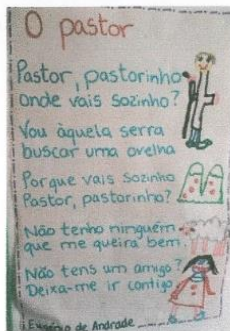 O pastor
Pastor, pastorinho
onde vais sozinho?
Vou àquela serra
buscar uma ovelha
Porque vais sozinho
Pastor, pastorinho?
Não tenho ninguém
que me queira bem.
Não tens um amigo?
Deixa-me ir contigo
Eugénio de Andrade